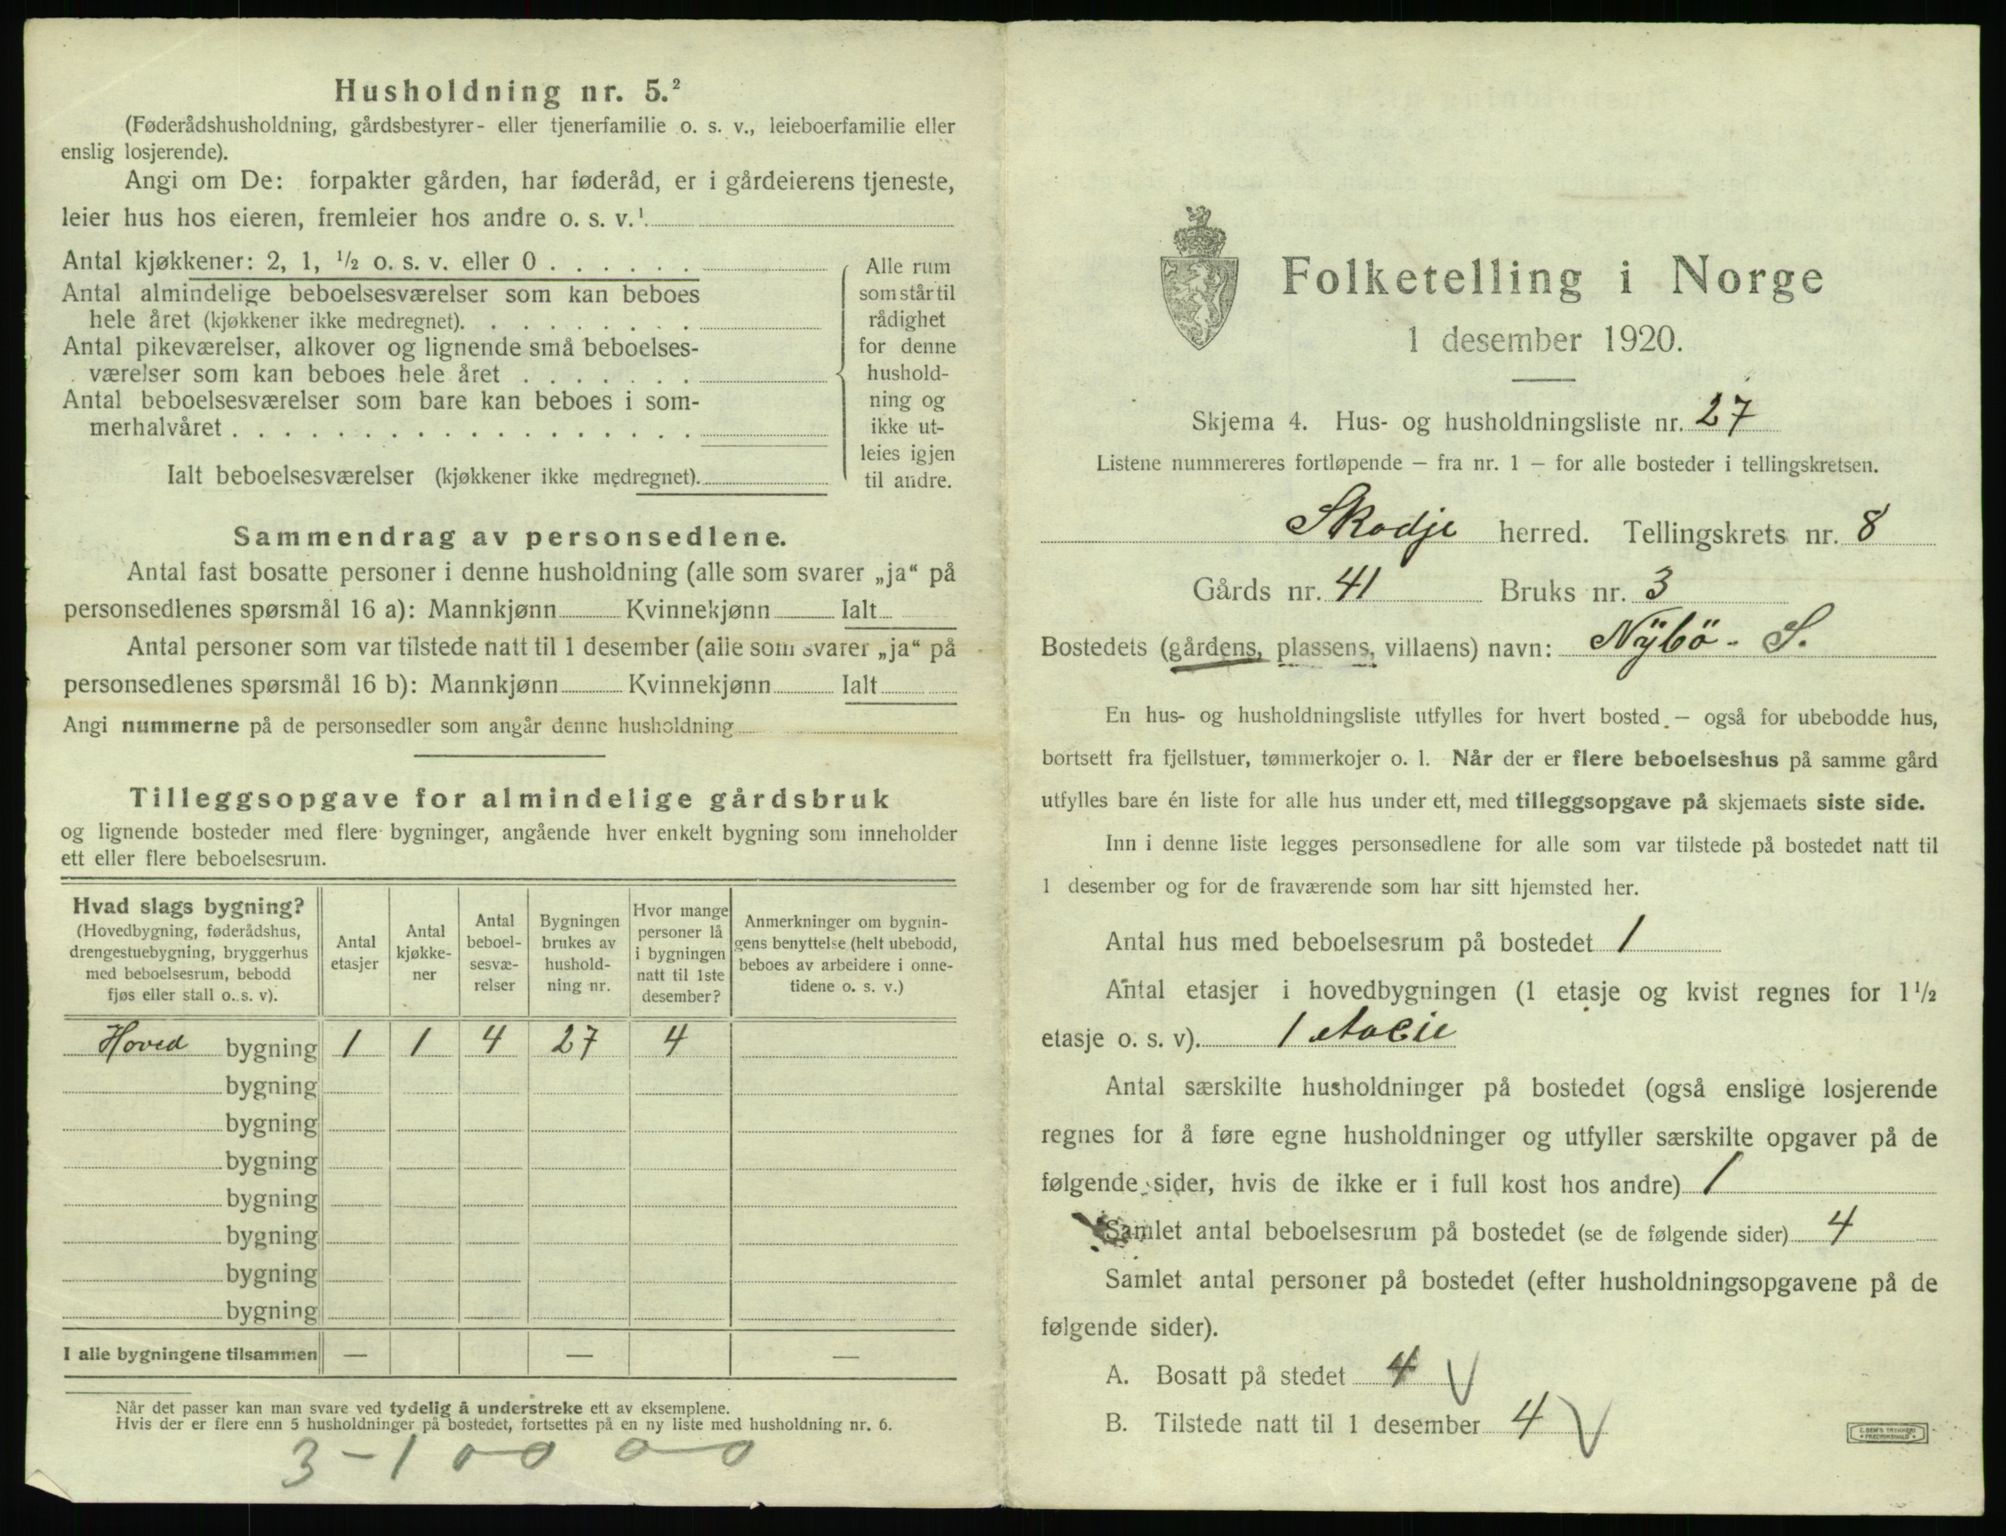 Husholdning nr. 5.²
(Føderådshusholdning, gårdsbestyrer- eller tjenerfamilie o. s. v., leieboerfamilie eller
enslig losjerende).
Angi om De: forpakter gården, har føderåd, er i gårdeierens tjeneste,
leier hus hos eieren, fremleier hos andre o. s. v.¹
Antal kjøkkener: 2, 1, ½ o. s. v. eller 0 . . . . . .
Antal almindelige beboelsesværelser som kan beboes
hele året (kjøkkener ikke medregnet). . . . . . . . .
Antal pikeværelser, alkover og lignende små beboelses-
værelser som kan beboes hele året . . . . . . .
Antal beboelsesværelser som bare kan beboes i som-
merhalvåret . . . . . . . . . . . . . . . . . .
Ialt beboelsesværelser (kjøkkener ikke medregnet).
Alle rum
som står til
rådighet
for denne
hushold-
ning og
ikke ut-
leies igjen
til andre.
Sammendrag av personsedlene.
Antal fast bosatte personer i denne husholdning (alle som svarer „ja“ på
personsedlenes spørsmål 16 a): Mannkjønn Kvinnekjønn Ialt
Antal personer som var tilstede natt til 1 desember (alle som svarer „ja“ på
personsedlenes spørsmål 16 b): Mannkjønn Kvinnekjønn Ialt
Angi nummerne på de personsedler som angår denne husholdning
Tilleggsopgave for almindelige gårdsbruk
og lignende bosteder med flere bygninger, angående hver enkelt bygning som inneholder
ett eller flere beboelsesrum.
Hvad slags bygning?
(Hovedbygning, føderådshus,
drengestuebygning, bryggerhus
med beboelsesrum, bebodd
fjøs eller stall o. s. v).
Antal
etasjer
Antal
kjøkke-
ner
Antal
beboel-
sesvæ-
relser
Bygningen
brukes av
hushold-
ning nr.
Hvor mange
personer lå
i bygningen
natt til 1ste
desember?
Anmerkninger om bygnin-
gens benyttelse (helt ubebodd,
beboes av arbeidere i onne-
tidene o. s. v.)
Hoved bygning 1 1 4 27 4
bygning
bygning
bygning
bygning
bygning
bygning
bygning
I alle bygningene tilsammen — — —
Når det passer kan man svare ved tydelig å understreke ett av eksemplene.
Hvis der er flere enn 5 husholdninger på bostedet, fortsettes på en ny liste med husholdning nr. 6.
3 - 1 0 0 0 0
Folketelling i Norge
1 desember 1920.
Skjema 4. Hus- og husholdningsliste nr. 27
Listene nummereres fortløpende – fra nr. 1 – for alle bosteder i tellingskretsen.
Skodje herred. Tellingskrets nr. 8
Gårds nr. 41 Bruks nr. 3
Bostedets (gårdens, plassens, villaens) navn: Nÿbö - S.
En hus- og husholdningsliste utfylles for hvert bosted – også for ubebodde hus,
bortsett fra fjellstuer, tømmerkojer o. l. Når der er flere beboelseshus på samme gård
utfylles bare én liste for alle hus under ett, med tilleggsopgave på skjemaets siste side.
Inn i denne liste legges personsedlene for alle som var tilstede på bostedet natt til
1 desember og for de fraværende som har sitt hjemsted her.
Antal hus med beboelsesrum på bostedet 1
Antal etasjer i hovedbygningen (1 etasje og kvist regnes for 1½
etasje o. s. v). 1
Antal særskilte husholdninger på bostedet (også enslige losjerende
regnes for å føre egne husholdninger og utfyller særskilte opgaver på de
følgende sider, hvis de ikke er i full kost hos andre) 1
Samlet antal beboelsesrum på bostedet (se de følgende sider) 4
Samlet antal personer på bostedet (efter husholdningsopgavene på de
følgende sider).
A. Bosatt på stedet 4 V
B. Tilstede natt til 1 desember 4 V